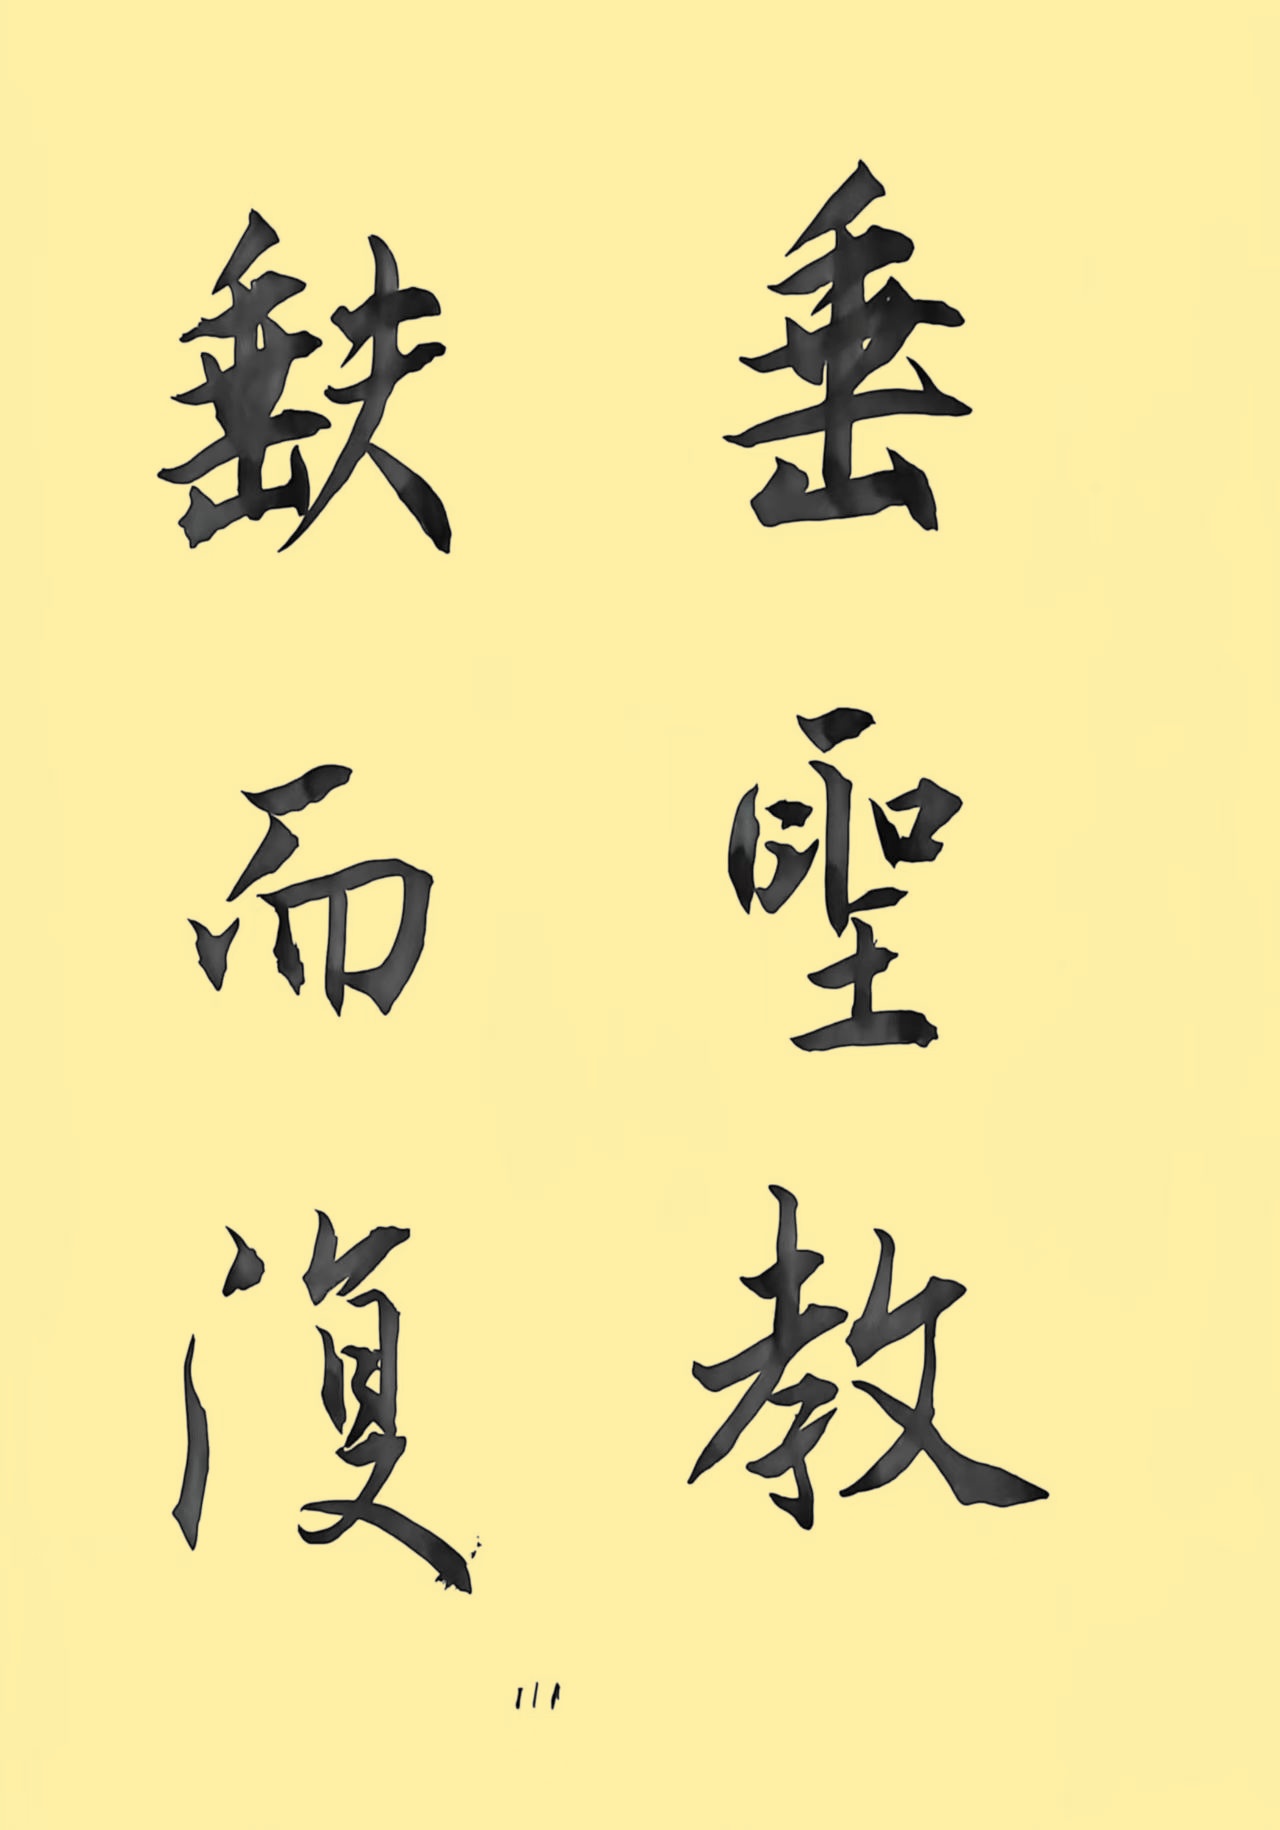 垂聖教
缺而復
111